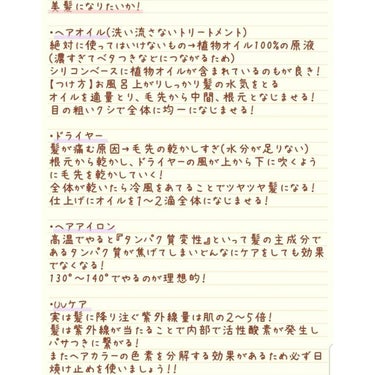 美髪になりたいか!
・ヘアオイル(洗い流さないトリートメント)
絶対に使ってはいけないもの→植物オイル100%の原液
(濃すぎてベタつきなどにつながるため)
シリコンベースに植物オイルが含まれているのものが良き!
【つけ方】お風呂上がりしっかり髪の水気をとる
オイルを適量とり、毛先から中間、根元となじませる!
目の粗いクシで全体に均一になじませる!
・ドライヤー
髪が痛む原因→毛先の乾かしすぎ(水分が足りない)
根元から乾かし、ドライヤーの風が上から下に吹くよう
に毛先を乾かしていく!
全体が乾いたら冷風をあてることでツヤツヤ髪になる!
仕上げにオイルを1〜2滴全体になじませる!
・ヘアアイロン
高温でやると『タンパク質変性』といって髪の主成分で
あるタンパク質が焦げてしまいどんなにケアをしても効果
でなくなる!
130°〜140°でやるのが理想的!
・UVケア
実は髪に降り注ぐ紫外線量は肌の2〜5倍!
髪は紫外線が当たることで内部で活性酸素が発生し
パサつきに繋がる!
またヘアカラーの色素を分解する効果があるため必ず日
焼け止めを使いましょう!!